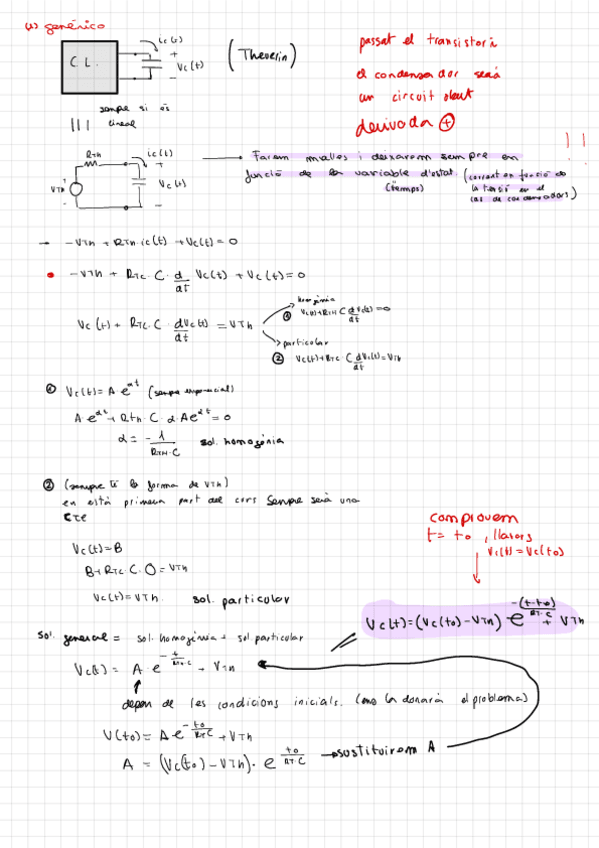 (1) genérico
C.L.
ic(t)
+
Vc(t)
-
(Thevenin)
passat el transistori
el condensador serà
un circuit obert
derivada ⊕
sempre si és
lineal
RTh
ic(t)
+
VTh
Vc(t)
-
→ Farem malles i deixarem sempre en
funció de la variable d'estat (corrent en funció de
(temps)
la tensió en el
cas de condensadors)
!!
→ -VTh + RTh·ic(t) + Vc(t) = 0
• -VTh + RTC·C·d/dt Vc(t) + Vc(t) = 0
Vc(t) + RTC·C·dVc(t)/dt = VTh
homogènia
① Vc(t)+RTH C dVc(t)/dt = 0
particular
② Vc(t)+RTC·C dVc(t)/dt = VTh
① Vc(t) = A·e^αt (sempre exponencial)
A·e^αt + RTh·C·α·Ae^αt = 0
α = -1/(RTH·C) sol. homogènia
② (sempre té la forma de VTh)
en està primera part del curs sempre serà una
CTE
Vc(t) = B
B + RTC·C·0 = VTh
Vc(t) = VTh. sol. particular
comprovem
t = to, llavors
Vc(t) = Vc(to)
Vc(t) = (Vc(to) - VTh) e^(-(t-to)/RT·C) + VTh
Sol. general = sol. homogènia + sol particular
Vc(t) = A·e^(-t/RT·C) + VTh
depen de les condicions inicials. (ens la donarà el problema)
V(to) = A e^(-to/RTC) + VTh
A = (Vc(to) - VTh)·e^(to/RT·C) → sustituirem A